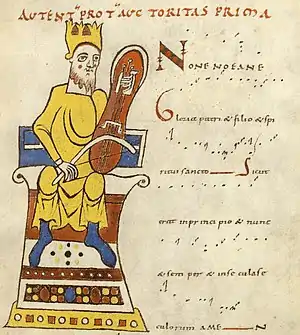 AUTENTꝰ PROTꝰ AUCTORITAS PRIMA
NONENOEANE
Gloria patri & filio & spi
ritui sancto Sicut
erat inprincipio & nunc
& semper & inseculase
culorum AMEN